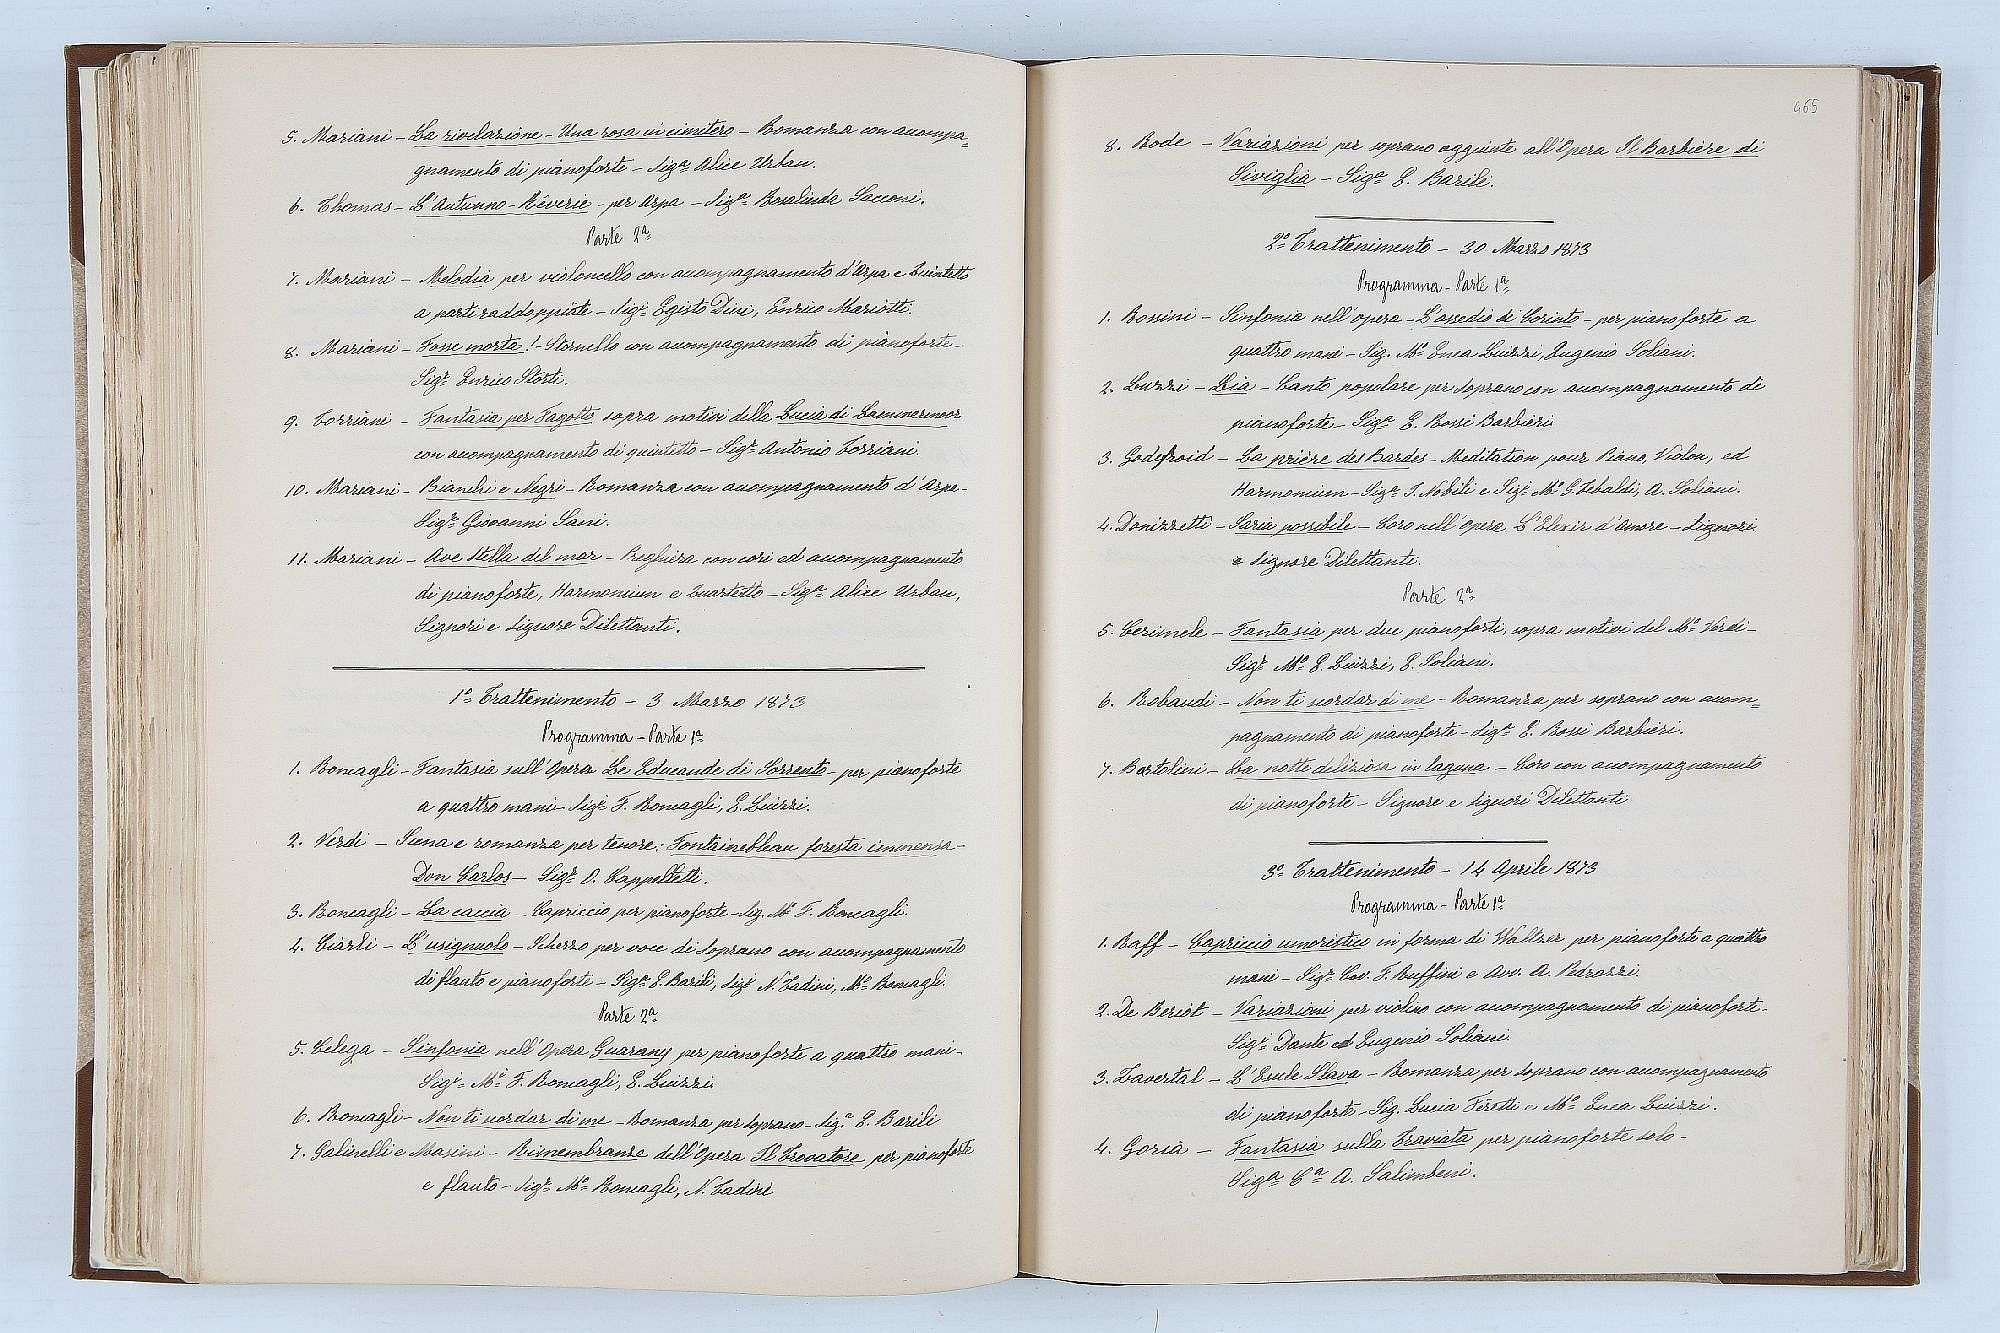 5. Mariani - La rivelazione - Una rosa in cimitero - Romanza con accompa=
gnamento di pianoforte - Sigª Alice Urban.
6. Thomas - L'Autunno - Rêverie - per Arpa - Sigª Rosalinda Sacconi.
Parte 2ª
7. Mariani - Melodia per violoncello con accompagnamento d'Arpa e Quintetto
a parti raddoppiate - Sigri Egisto Dini, Enrico Mariotti.
8. Mariani - Fosse morta! - Stornello con accompagnamento di pianoforte -
Sigr Enrico Storti.
9. Torriani - Fantasia per Fagotto sopra motivi della Lucia di Lammermoor
con accompagnamento di quintetto - Sigr Antonio Torriani.
10. Mariani - Bianchi e Negri - Romanza con accompagnamento d'Arpa -
Sigr Giovanni Sani.
11. Mariani - Ave stella del mar - Preghiera con cori ed accompagnamento
di pianoforte, Harmonium e Quartetto - Sigª Alice Urban,
Signori e signore Dilettanti.
1º Trattenimento - 3 Marzo 1873
Programma - Parte 1ª
1. Roncagli - Fantasia sull'Opera Le Educande di Sorrento - per pianoforte
a quattro mani - Sigi F. Roncagli, E. Luizzi.
2. Verdi - Scena e romanza per tenore: Fontainebleau foresta immensa -
Don Carlos - Sigr O. Cappelletti.
3. Roncagli - La caccia - Capriccio per pianoforte - Sig. Mº F. Roncagli.
4. Ciardi - L'usignuolo - Scherzo per voce di soprano con accompagnamento
di flauto e pianoforte - Sigª E. Barili, Sigi N. Tadini, Mº Roncagli.
Parte 2ª
5. Celega - Sinfonia nell'Opera Guarany per pianoforte a quattro mani -
Sigi Mi F. Roncagli, E. Luizzi
6. Roncagli - Non ti scordar di me - Romanza per soprano - Sigª E. Barili
7. Galinelli e Masini - Rimembranze dell'Opera Il Trovatore per pianoforte
e flauto - Sigri Mº Roncagli, N. Tadini
465
8. Rode - Variazioni per soprano aggiunte all'Opera Il Barbiere di
Siviglia - Sigª E. Barili.
2º Trattenimento - 30 Marzo 1873
Programma - Parte 1ª
1. Rossini - Sinfonia nell'opera - L'assedio di Corinto - per pianoforte a
quattro mani - Sig. Mi Enea Luizzi, Eugenio Soliani.
2. Luzzi - Lia - Canto popolare per soprano con accompagnamento di
pianoforte - Sigª E. Rossi Barbieri
3. Godefroid - La prière des Bardes - Meditation pour Piano, Violon, ed
Harmonium - Sigª I. Nobili e Sigi Mi G. Tebaldi, A. Soliani.
4. Donizzetti - Saria possibile - Coro nell'Opera L'Elexir d'Amore - Signori
e signore Dilettanti.
Parte 2ª
5. Cerimele - Fantasia per due pianoforti, sopra motivi del Mº Verdi -
Sigi Mi E. Luizzi, E. Soliani.
6. Robaudi - Non ti scordar di me - Romanza per soprano con accom=
pagnamento di pianoforte - Sigª E. Rossi Barbieri.
7. Bartolini - La notte deliziosa in laguna - Coro con accompagnamento
di pianoforte - Signore e signori Dilettanti
3º Trattenimento - 14 Aprile 1873
Programma - Parte 1ª
1. Raff - Capriccio umoristico in forma di Waltzer per pianoforte a quattro
mani - Sigi Cav. F. Ruffini e Avv. A. Pedrazzi
2. De Beriot - Variazioni per violino con accompagnamento di pianoforte -
Sigi Dante ed Eugenio Soliani.
3. Zavertal - L'Esule Slava - Romanza per soprano con accompagnamento
di pianoforte - Sig. Lucia Ferotti e Mº Enea Luizzi.
4. Goria - Fantasia sulla Traviata per pianoforte solo -
Sigª Cª A. Salimbeni.